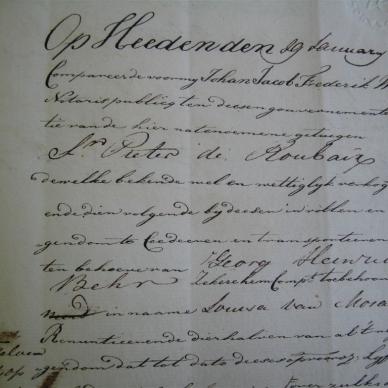 Op Heeden den 29 January
Compareerde voor my Johan Jacob Frederik W
Notaris publicq ten deesen gouvernemente
tie van de hier natenoemene getuigen
Sr. Pieter de Roubaix
dewelke bekende wel en wettiglyk verkog
ende dien volgende by deesen in vollen en
gendom te Cedeeren en transporteeren
ten behoeve van Georg Heinric
Behr Zekere hem Compt. toebehoor
in naame Louisa van Mosa
Renuntieerende dierhalven van al't
gendom dat tot dato deeses